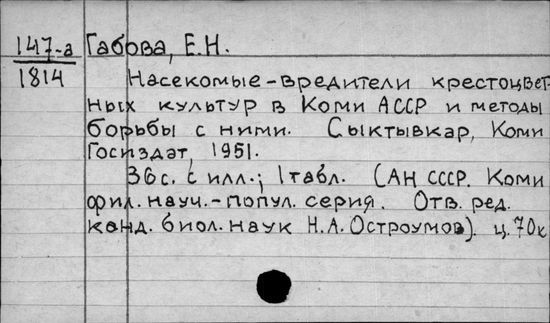 147-а Габова, Е.Н.
1814
Насекомые-вредители крестоцвет-
ных культур в Коми АССР и методы
борьбы с ними. Сыктывкар, Коми
Госиздат, 1951.
36с. с илл.; 1 табл. (АН СССР. Коми
фил. науч.-попул. серия. Отв. ред.
канд. биол. наук Н.А. Остроумов). ц. 70к